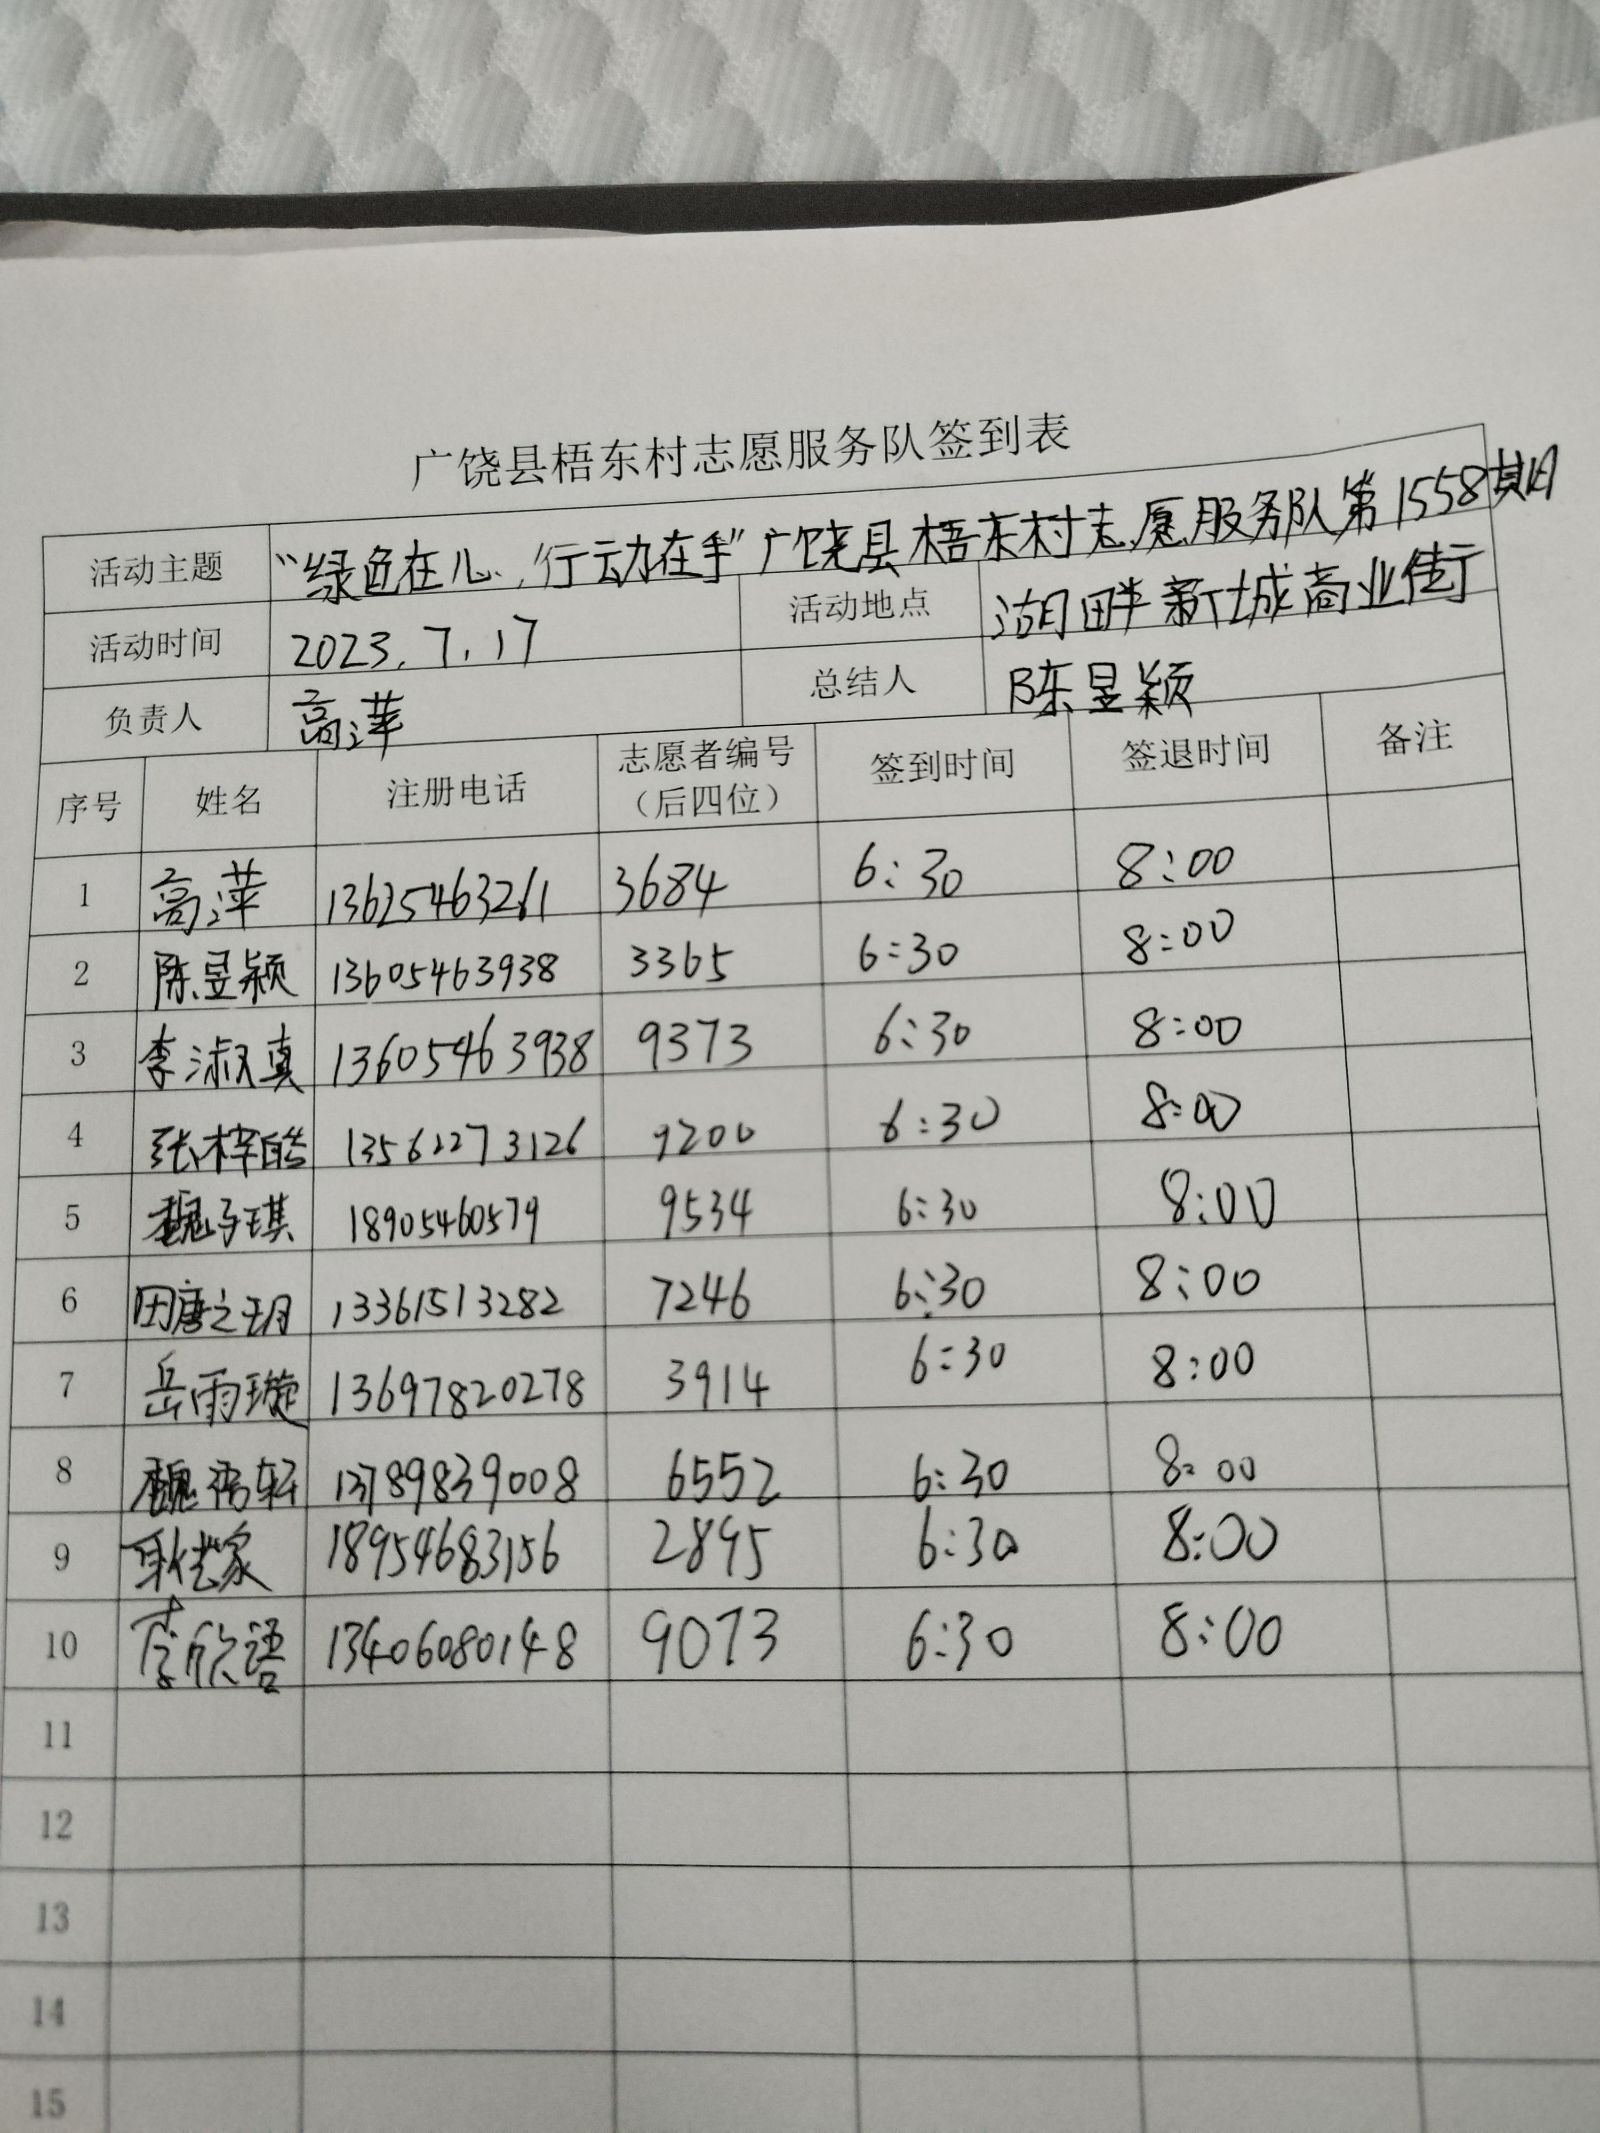 广饶县梧东村志愿服务队签到表
活动主题 “绿色在心,行动在手”广饶县梧东村志愿服务队第1558期
活动时间 2023.7.17 活动地点 湖畔新城商业街
负责人 高萍 总结人 陈昱颖
序号 姓名 注册电话 志愿者编号（后四位） 签到时间 签退时间 备注
1 高萍 13625463261 3684 6:30 8:00
2 陈昱颖 13605463938 3365 6:30 8:00
3 李淑真 13605463938 9373 6:30 8:00
4 张梓皓 135612273126 9200 6:30 8:00
5 魏子琪 18905460579 9534 6:30 8:00
6 田唐之玥 13361513282 7246 6:30 8:00
7 岳雨璇 13697820278 3914 6:30 8:00
8 魏 轩 13789839008 6552 6:30 8:00
9 家 18954683156 2895 6:30 8:00
10 李欣语 13406080148 9073 6:30 8:00
11
12
13
14
15